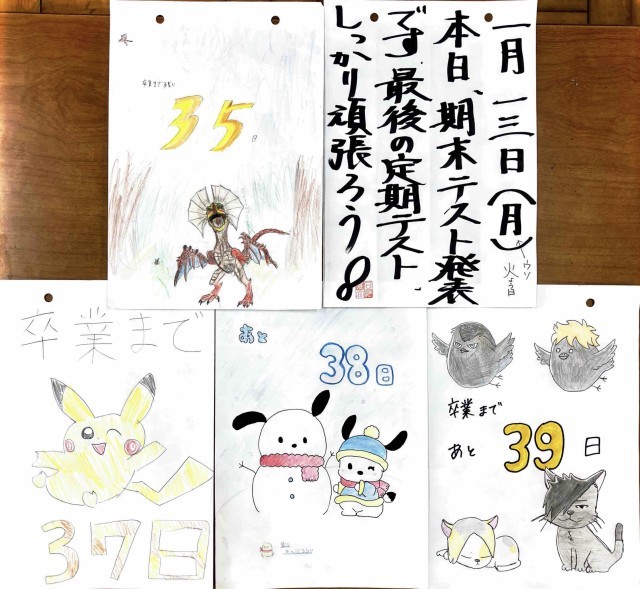 卒業まであと
35
日
一月一三日(月)
ウソ
火
本日、期末テスト発表
です。最後の定期テスト
しっかり頑張ろう!
卒業まで
37日
あと
38日
卒業まで
あと 39 日